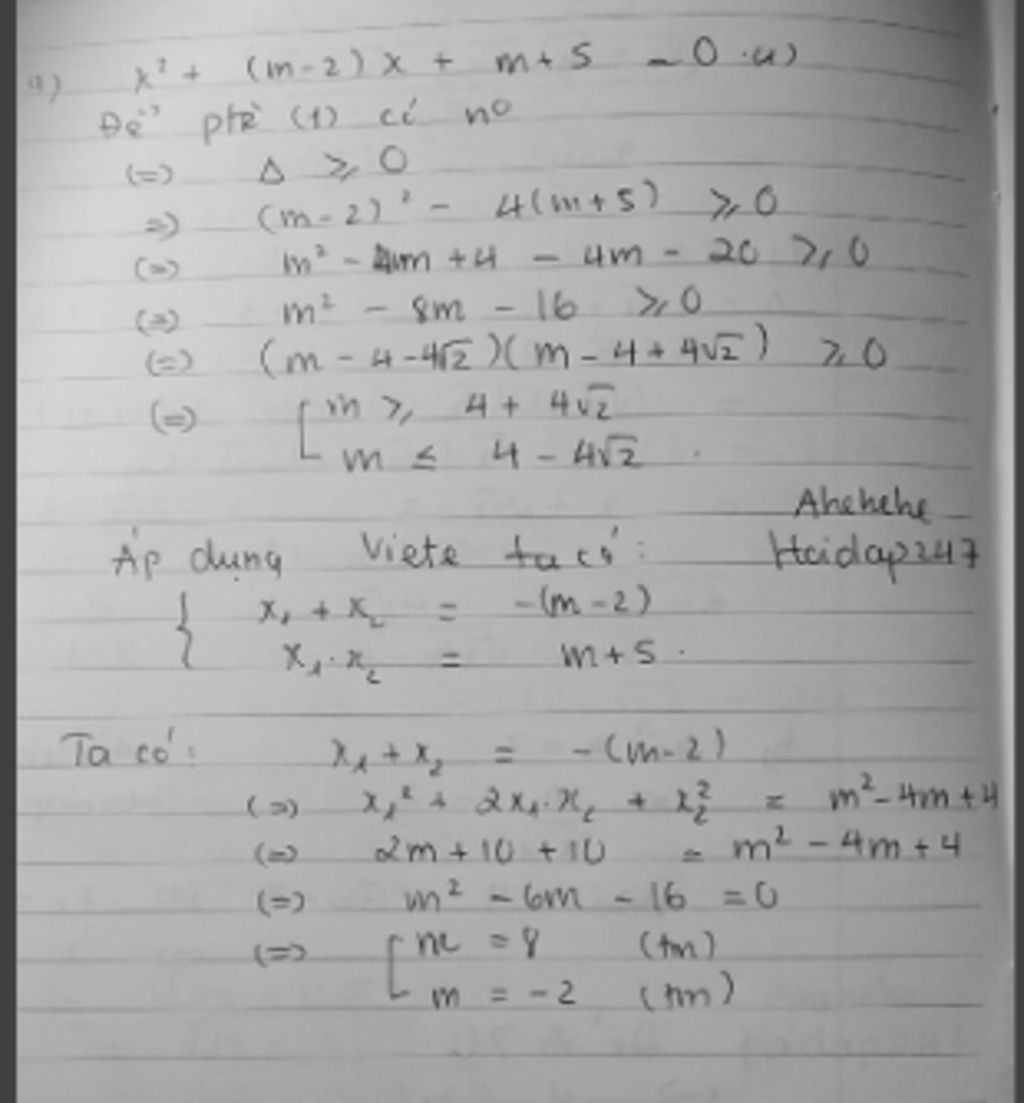 a) x² + (m-2)x + m+5 = 0 (1)
Để ptr (1) có n⁰
(=) Δ ≥ 0
=) (m-2)² - 4(m+5) ≥ 0
(=) m² - 4m + 4 - 4m - 20 ≥ 0
(=) m² - 8m - 16 ≥ 0
(=) (m - 4 - 4√2)(m - 4 + 4√2) ≥ 0
(=) [ m ≥ 4 + 4√2
m ≤ 4 - 4√2 .
Ahehehe
Áp dụng Viete ta có : Haidap247
{ x₁ + x₂ = -(m-2)
x₁.x₂ = m+5 .
Ta có : x₁ + x₂ = -(m-2)
(=) x₁² + 2x₁.x₂ + x₂² = m² - 4m + 4
(=) 2m + 10 + 10 = m² - 4m + 4
(=) m² - 6m - 16 = 0
(=) [ m = 8 (tm)
m = -2 (tm)